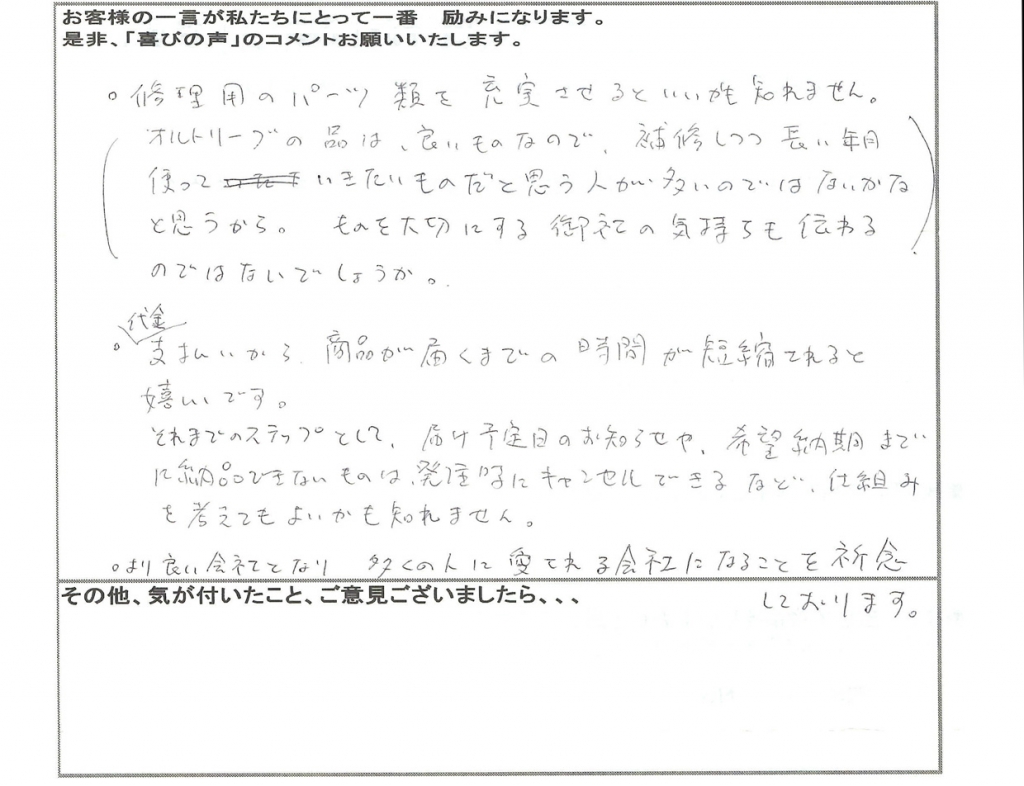 お客様の一言が私たちにとって一番 励みになります。
是非、「喜びの声」のコメントお願いいたします。
。修理用のパーツ類を充実させるといいかも知れません。
(オルトリーブの品は、良いものなので、補修しつつ長い年月
使って いきたいものだと思う人が多いのではないかな
と思うから。 ものを大切にする御社の気持ちも伝わる)
のではないでしょうか。
代金
。支払いから、商品が届くまでの時間が短縮されると
嬉しいです。
それまでのステップとして、届け予定日のお知らせや、希望納期まで
に納品できないものは、発注時にキャンセルできるなど、仕組み
を考えてもよいかも知れません。
。より良い会社となり 多くの人に愛される会社になることを祈念
その他、気が付いたこと、ご意見ございましたら、、、
しております。